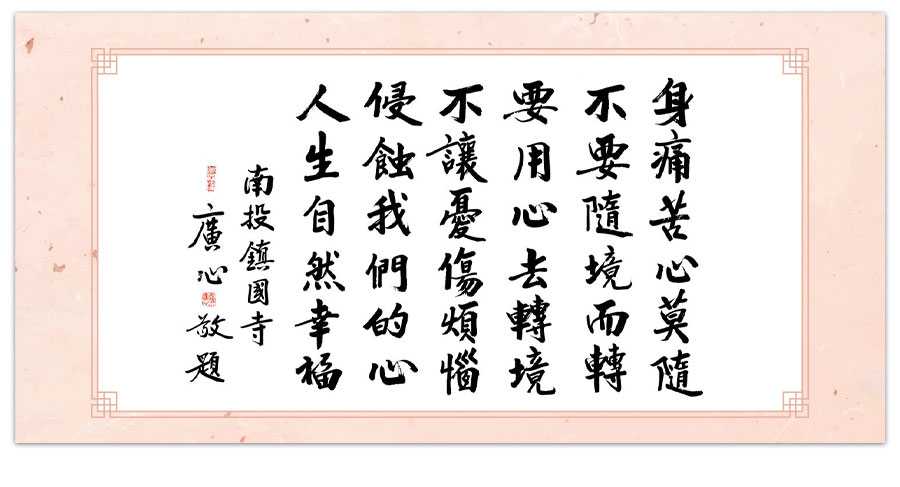 身痛苦心莫隨
不要隨境而轉
要用心去轉境
不讓憂傷煩惱
侵蝕我們的心
人生自然幸福
南投鎮國寺
廣心敬題